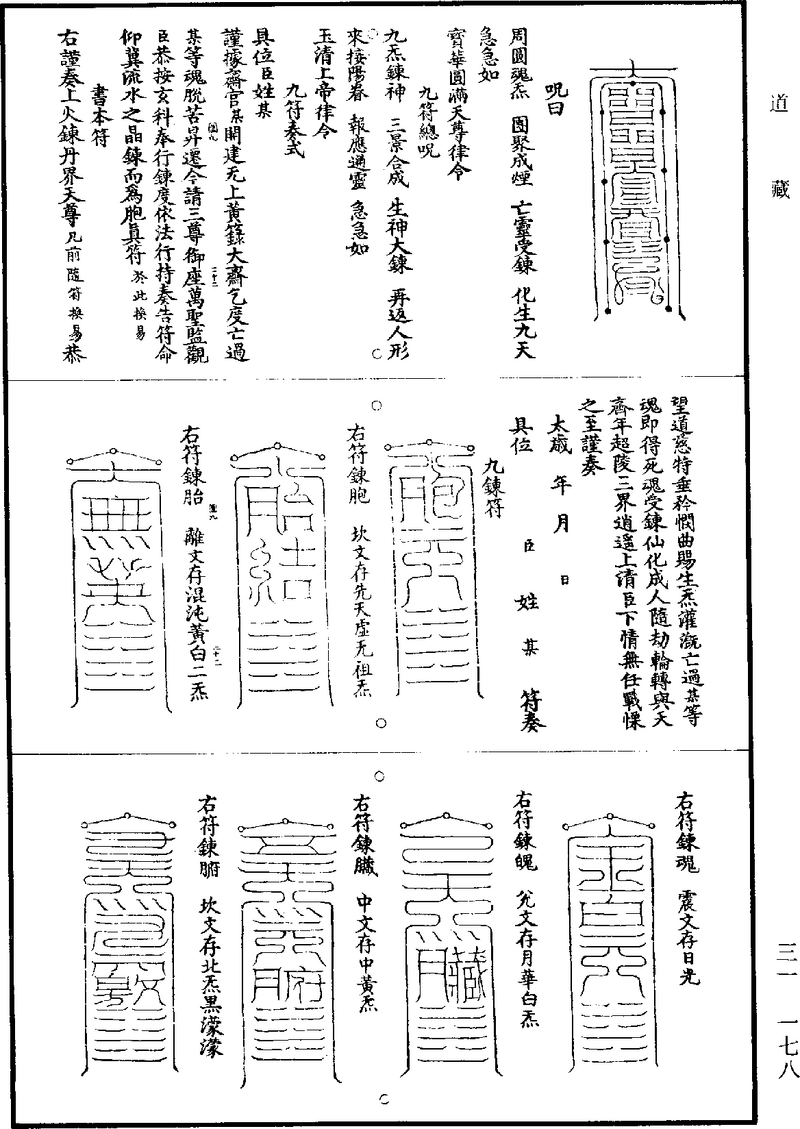 道藏
呪曰
周圓魂炁　團聚成煙　亡靈受鍊　化生九天
急急如
寶華圓滿天尊律令
九符總呪
九炁鍊神　三景合成　生神大鍊　再返人形
來接陽眷　報應通靈　急急如
玉清上帝律令
九符奏式
具位臣姓某
謹據齋官某開建无上黃籙大齋乞度亡過
某等魂脫苦昇遷今請三尊御座萬聖監觀
臣恭按玄科奉行鍊度依法行持奏告符命
仰冀流水之晶鍊而爲胞真符於此換易
書本符
右謹奏上火鍊丹界天尊凡前隨符換易恭
望道慈特垂矜憫曲賜生炁灌溉亡過某等
魂即得死魂受鍊仙化成人隨劫輪轉與天
齊年超陵三界逍遥上清臣下情無任戰慄
之至謹奏
太歲　年　月　日
具位　臣　姓　某　符奏
九鍊符
右符鍊胞　坎文存先天虛无祖炁
右符鍊胎　離文存混沌黃白二炁
右符鍊魂　震文存日光
右符鍊魄　兌文存月華白炁
右符鍊臟　中文存中黃炁
右符鍊腑　坎文存北炁黑濛濛
三一　一七八